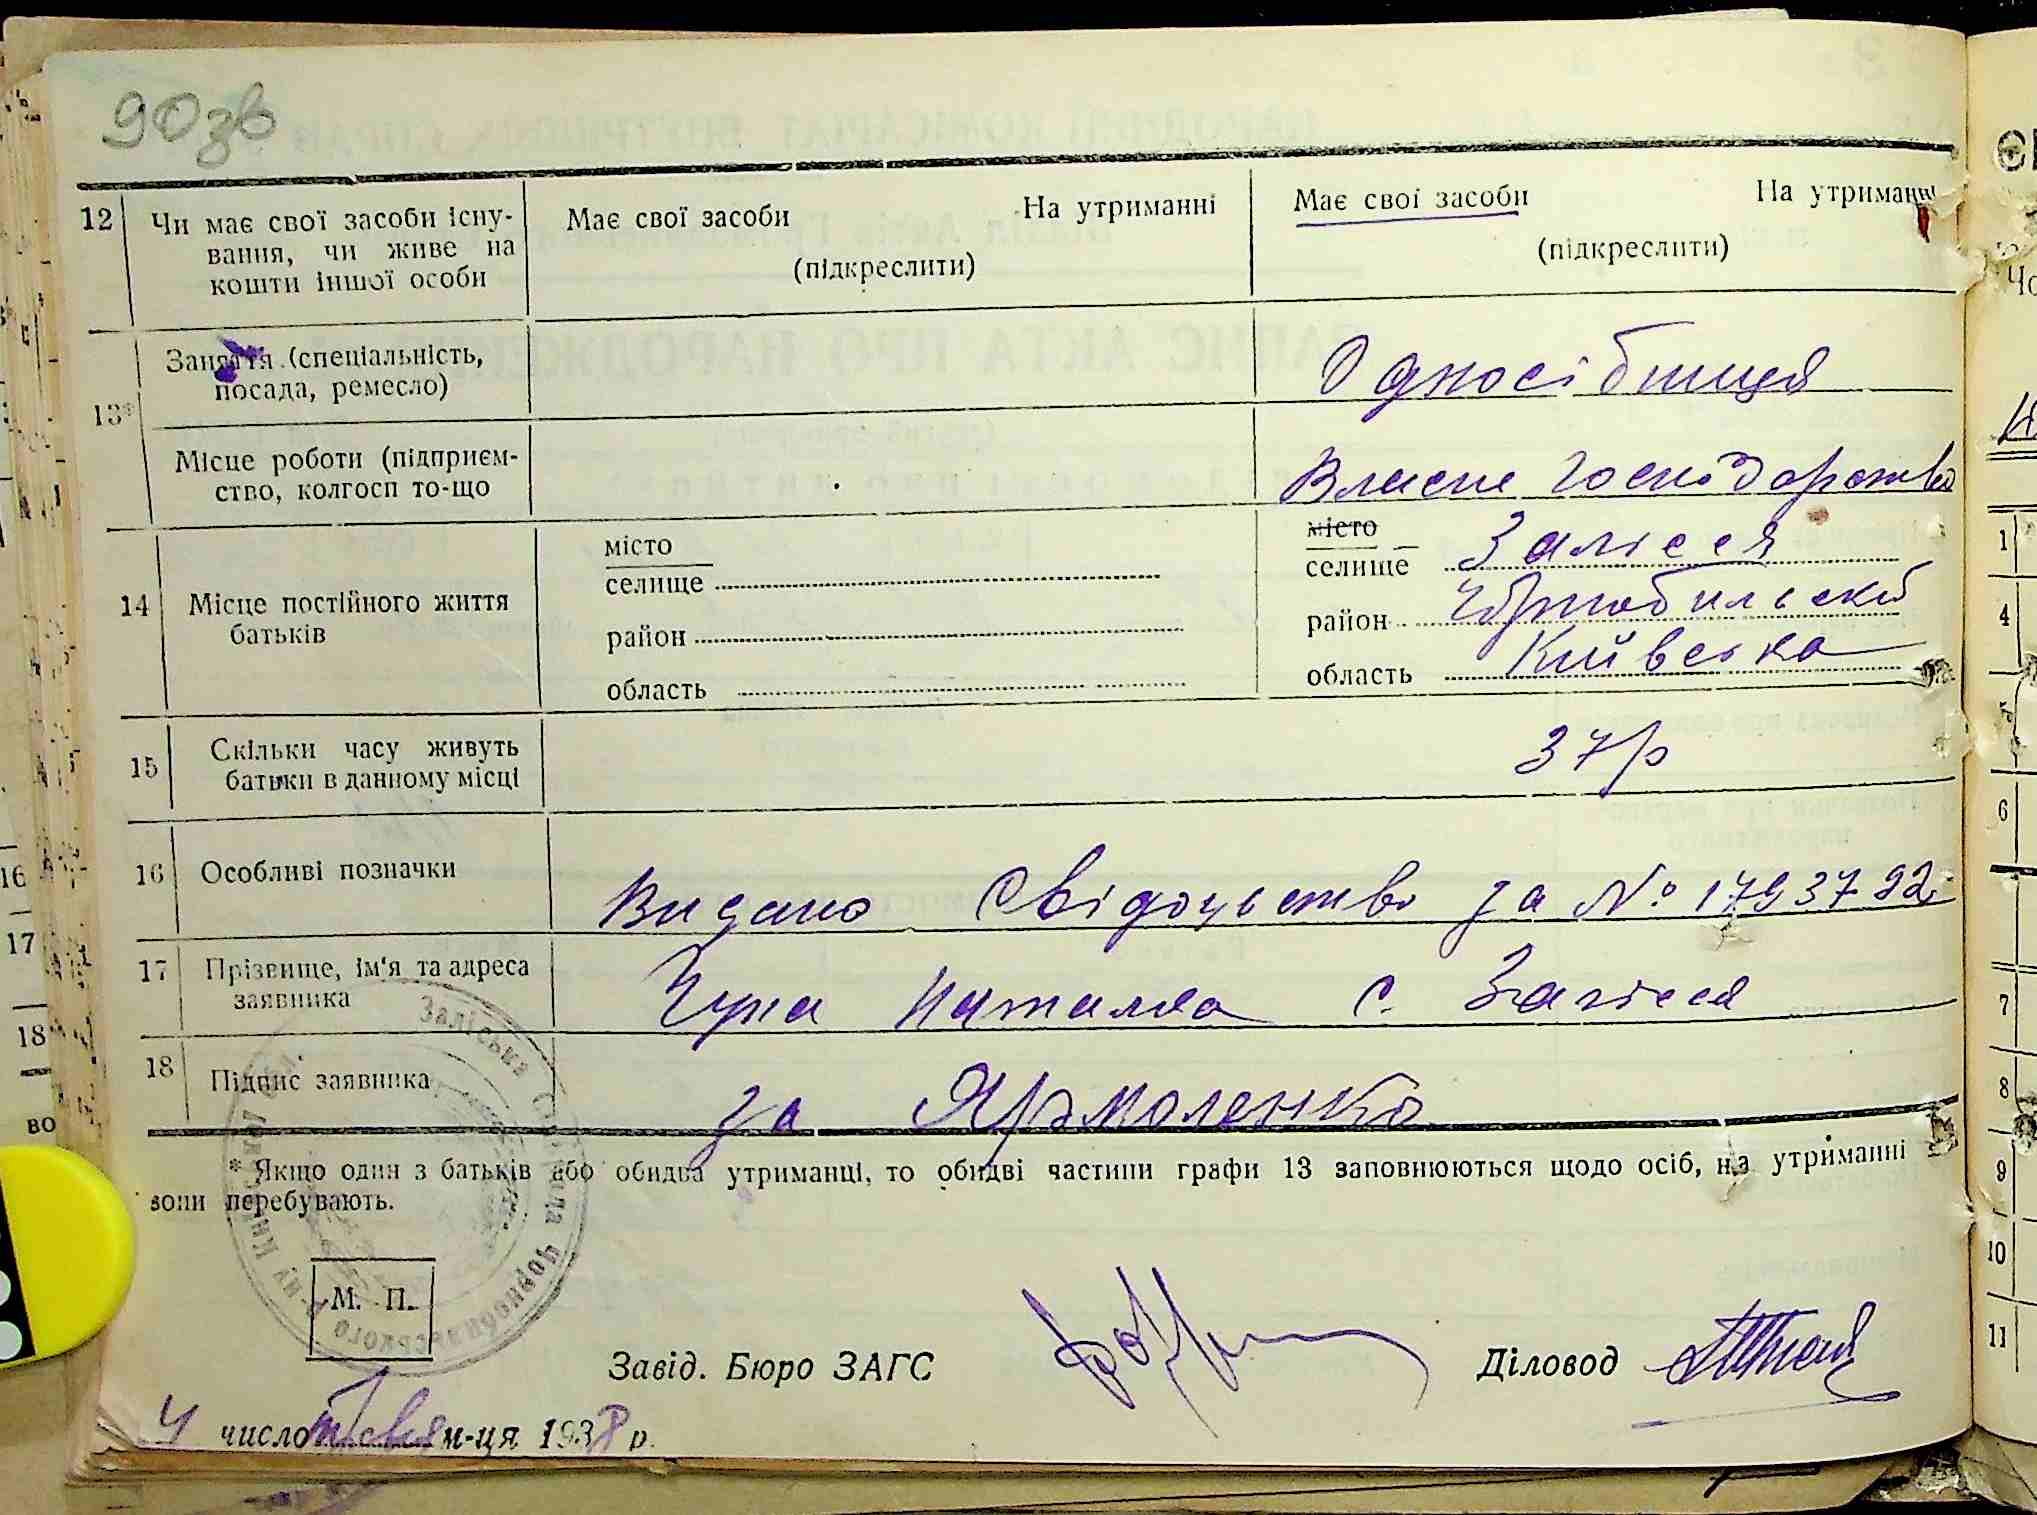 90зв
12 Чи має свої засоби існу-
вання, чи живе на
кошти іншої особи
Має свої засоби На утриманні
(підкреслити)
Має свої засоби На утриманні
(підкреслити)
13*
Заняття (спеціальність,
посада, ремесло)
Односібниця
Місце роботи (підприєм-
ство, колгосп то-що
Власне господарство
14 Місце постійного життя
батьків
місто
селище
район
область
місто
селище Залісся
район Чорнобильский
область Київська
15 Скільки часу живуть
батьки в данному місці
37р
16 Особливі позначки
Видано Свідоцьтво за № 1793792
17 Прізвище, ім'я та адреса
заявника
Наталка с. Залісся
18 Підпис заявника
за Ярмоленко
* Якщо один з батьків або обидва утриманці, то обидві частини графи 13 заповнюються щодо осіб, на утриманні
вони перебувають.
Заліська Чорнобильського р-ну
М. П.
Завід. Бюро ЗАГС
Діловод
4 число м-ця 1938 р.
16
17
18
во
1
4
5
6
7
8
9
10
11